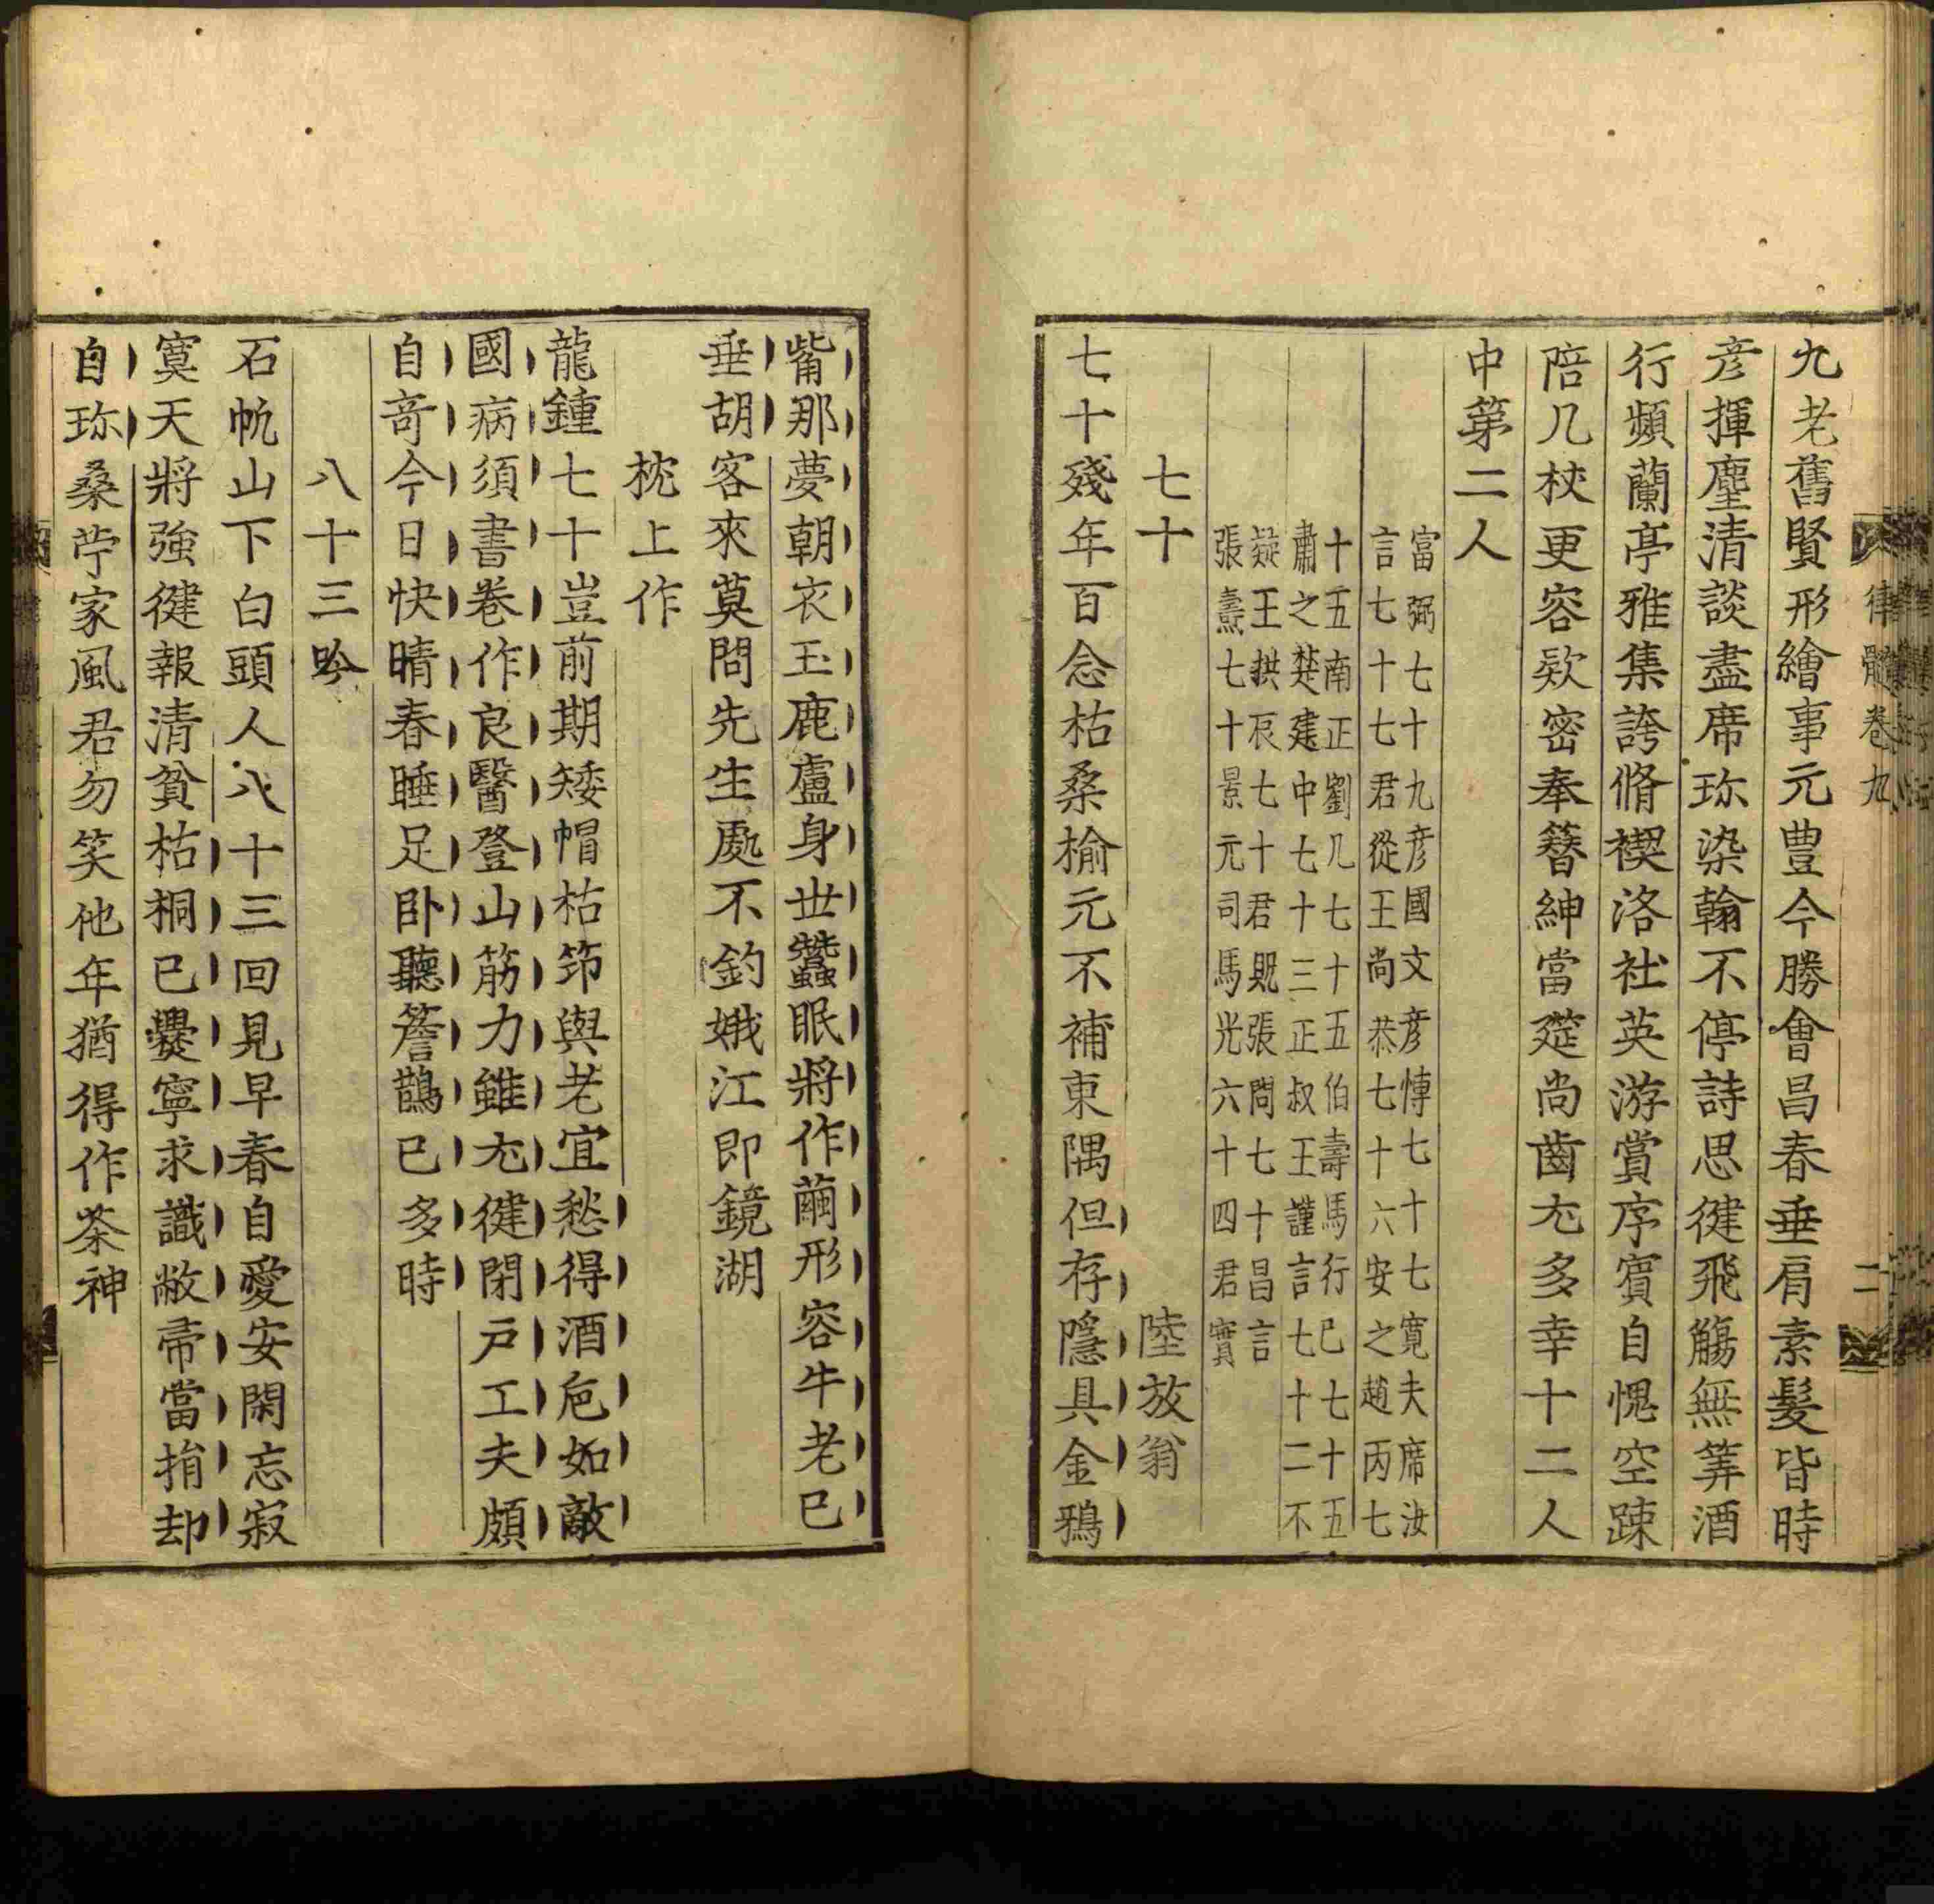 律髓卷九
二
九老舊賢形繪事元豊今勝會昌春垂肩素髮皆時
彦揮麈清談盡席珎染翰不停詩思健飛觴無筭酒
行頻蘭亭雅集誇脩禊洛社英游賞序賔自愧空踈
陪几杖更容欵密奉簪紳當筵尚齒尢多幸十二人
中第二人
富弼七十九彦國文彦愽七十七寛夫席汝
言七十七君從王尚恭七十六安之趙丙七
十五南正劉几七十五伯壽馬行巳七十五
肅之楚建中七十三正叔王謹言七十二不
疑王拱辰七十君貺張問七十昌言
張燾七十景元司馬光六十四君實
七十 陸放翁
七十殘年百念枯桑榆元不補東隅但存隱具金鴉
觜那夢朝衣玉鹿盧身世蠶眠將作繭形容牛老已
垂胡客來莫問先生處不釣娥江即鏡湖
枕上作
龍鍾七十豈前期矮帽枯笻與老宜愁得酒巵如敵
國病須書卷作良醫登山筋力雖尢健閉戸工夫頗
自竒今日快晴春睡足卧聽簷鵲已多時
八十三吟
石帆山下白頭人八十三回見早春自愛安閑忘寂
寞天將強健報清貧枯桐已爨寧求識敝帚當捐却
自珎桑苧家風君勿笑他年猶得作茶神